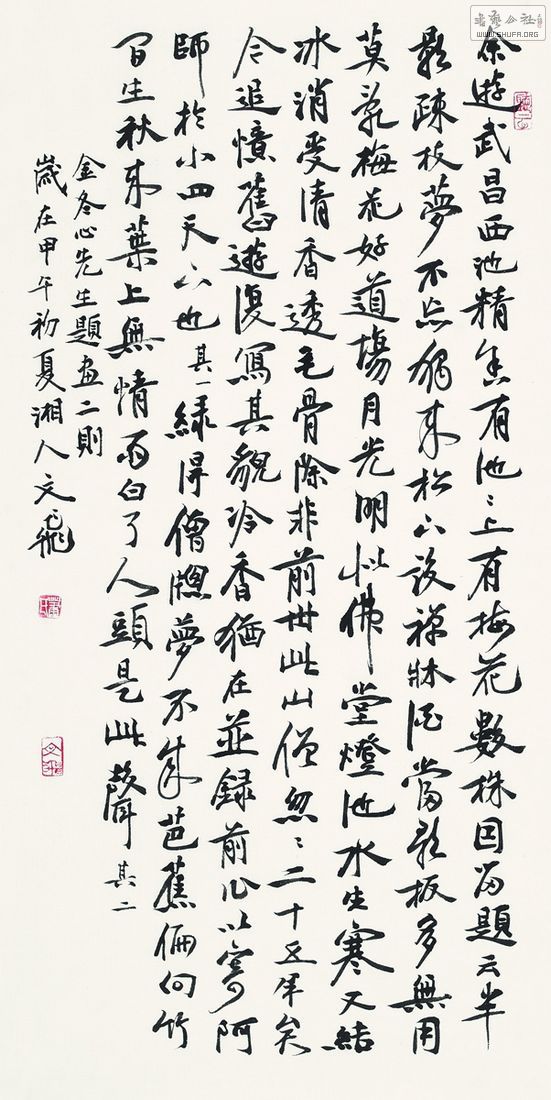 余遊武昌西池精舍有池〻上有梅花數株因留題云半
影疎枝夢不忘獨来松下設禪牀酒當歌板多無用
莫亂梅花好道場月光明似佛堂燈池水生寒又結
冰消受清香透毛骨除非前世此山僧忽〻二十五年矣
今追憶舊遊復寫其貌冷香猶在並録前作以寄阿
師於小四天下也 其一 緑得僧牕夢不成芭蕉偏向竹
間生秋来葉上無情雨白了人頭是此聲 其二
金冬心先生題畫二則
歲在甲午初夏湘人文飛
書藝公社
WWW.SHUFA.ORG